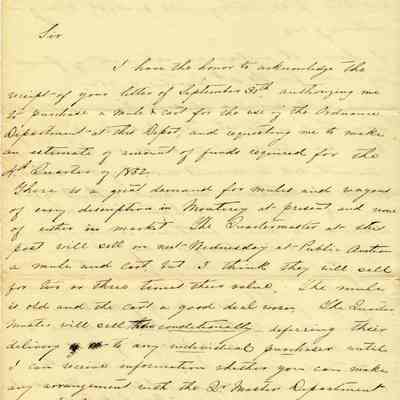 Sir
I have the honor to acknowledge the
receipt of your letter of September 30th authorizing me
to purchase a mule & cart for the use of the Ordnance
Department at this Depot, and requesting me to make
an estimate of amount of funds required for the
4th Quarter of 1852.
There is a great demand for mules and wagons
of every description in Monterey at present and none
of either in market. The Quartermaster at this
post will sell on next Wednesday at Public Auction
a mule and cart, but I think they will sell
for two or three times their value. The mule
is old and the cart a good deal worn. The Quarter
Master will sell conditionally deferring their
delivery to any individual purchaser until
I can receive information whether you can make
any arrangement with the Qr. Master Department